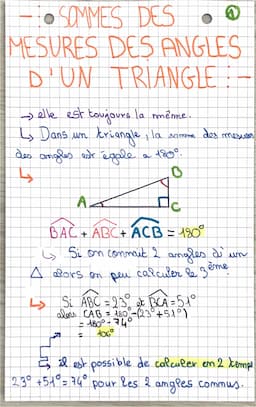 SOMMES DES
①
MESURES DES ANGLES
D'UN TRIANGLE :-
→ elle est toujours la même.
↳ Dans un triangle, la somme des mesures
des angles est égale a 180°.
B
A
C
BAC + ABC + ACB = 180°
↳ Si on connait 2 angles d'un
△ alors on peu calculer le 3ème
Si ABC = 23° et BCA = 51°
alors CAB = 180° - (23° + 51°)
= 180° - 74°
= 106°
↳ il est possible de calculer en 2 temps
23° + 51° = 74° pour les 2 angles connus.